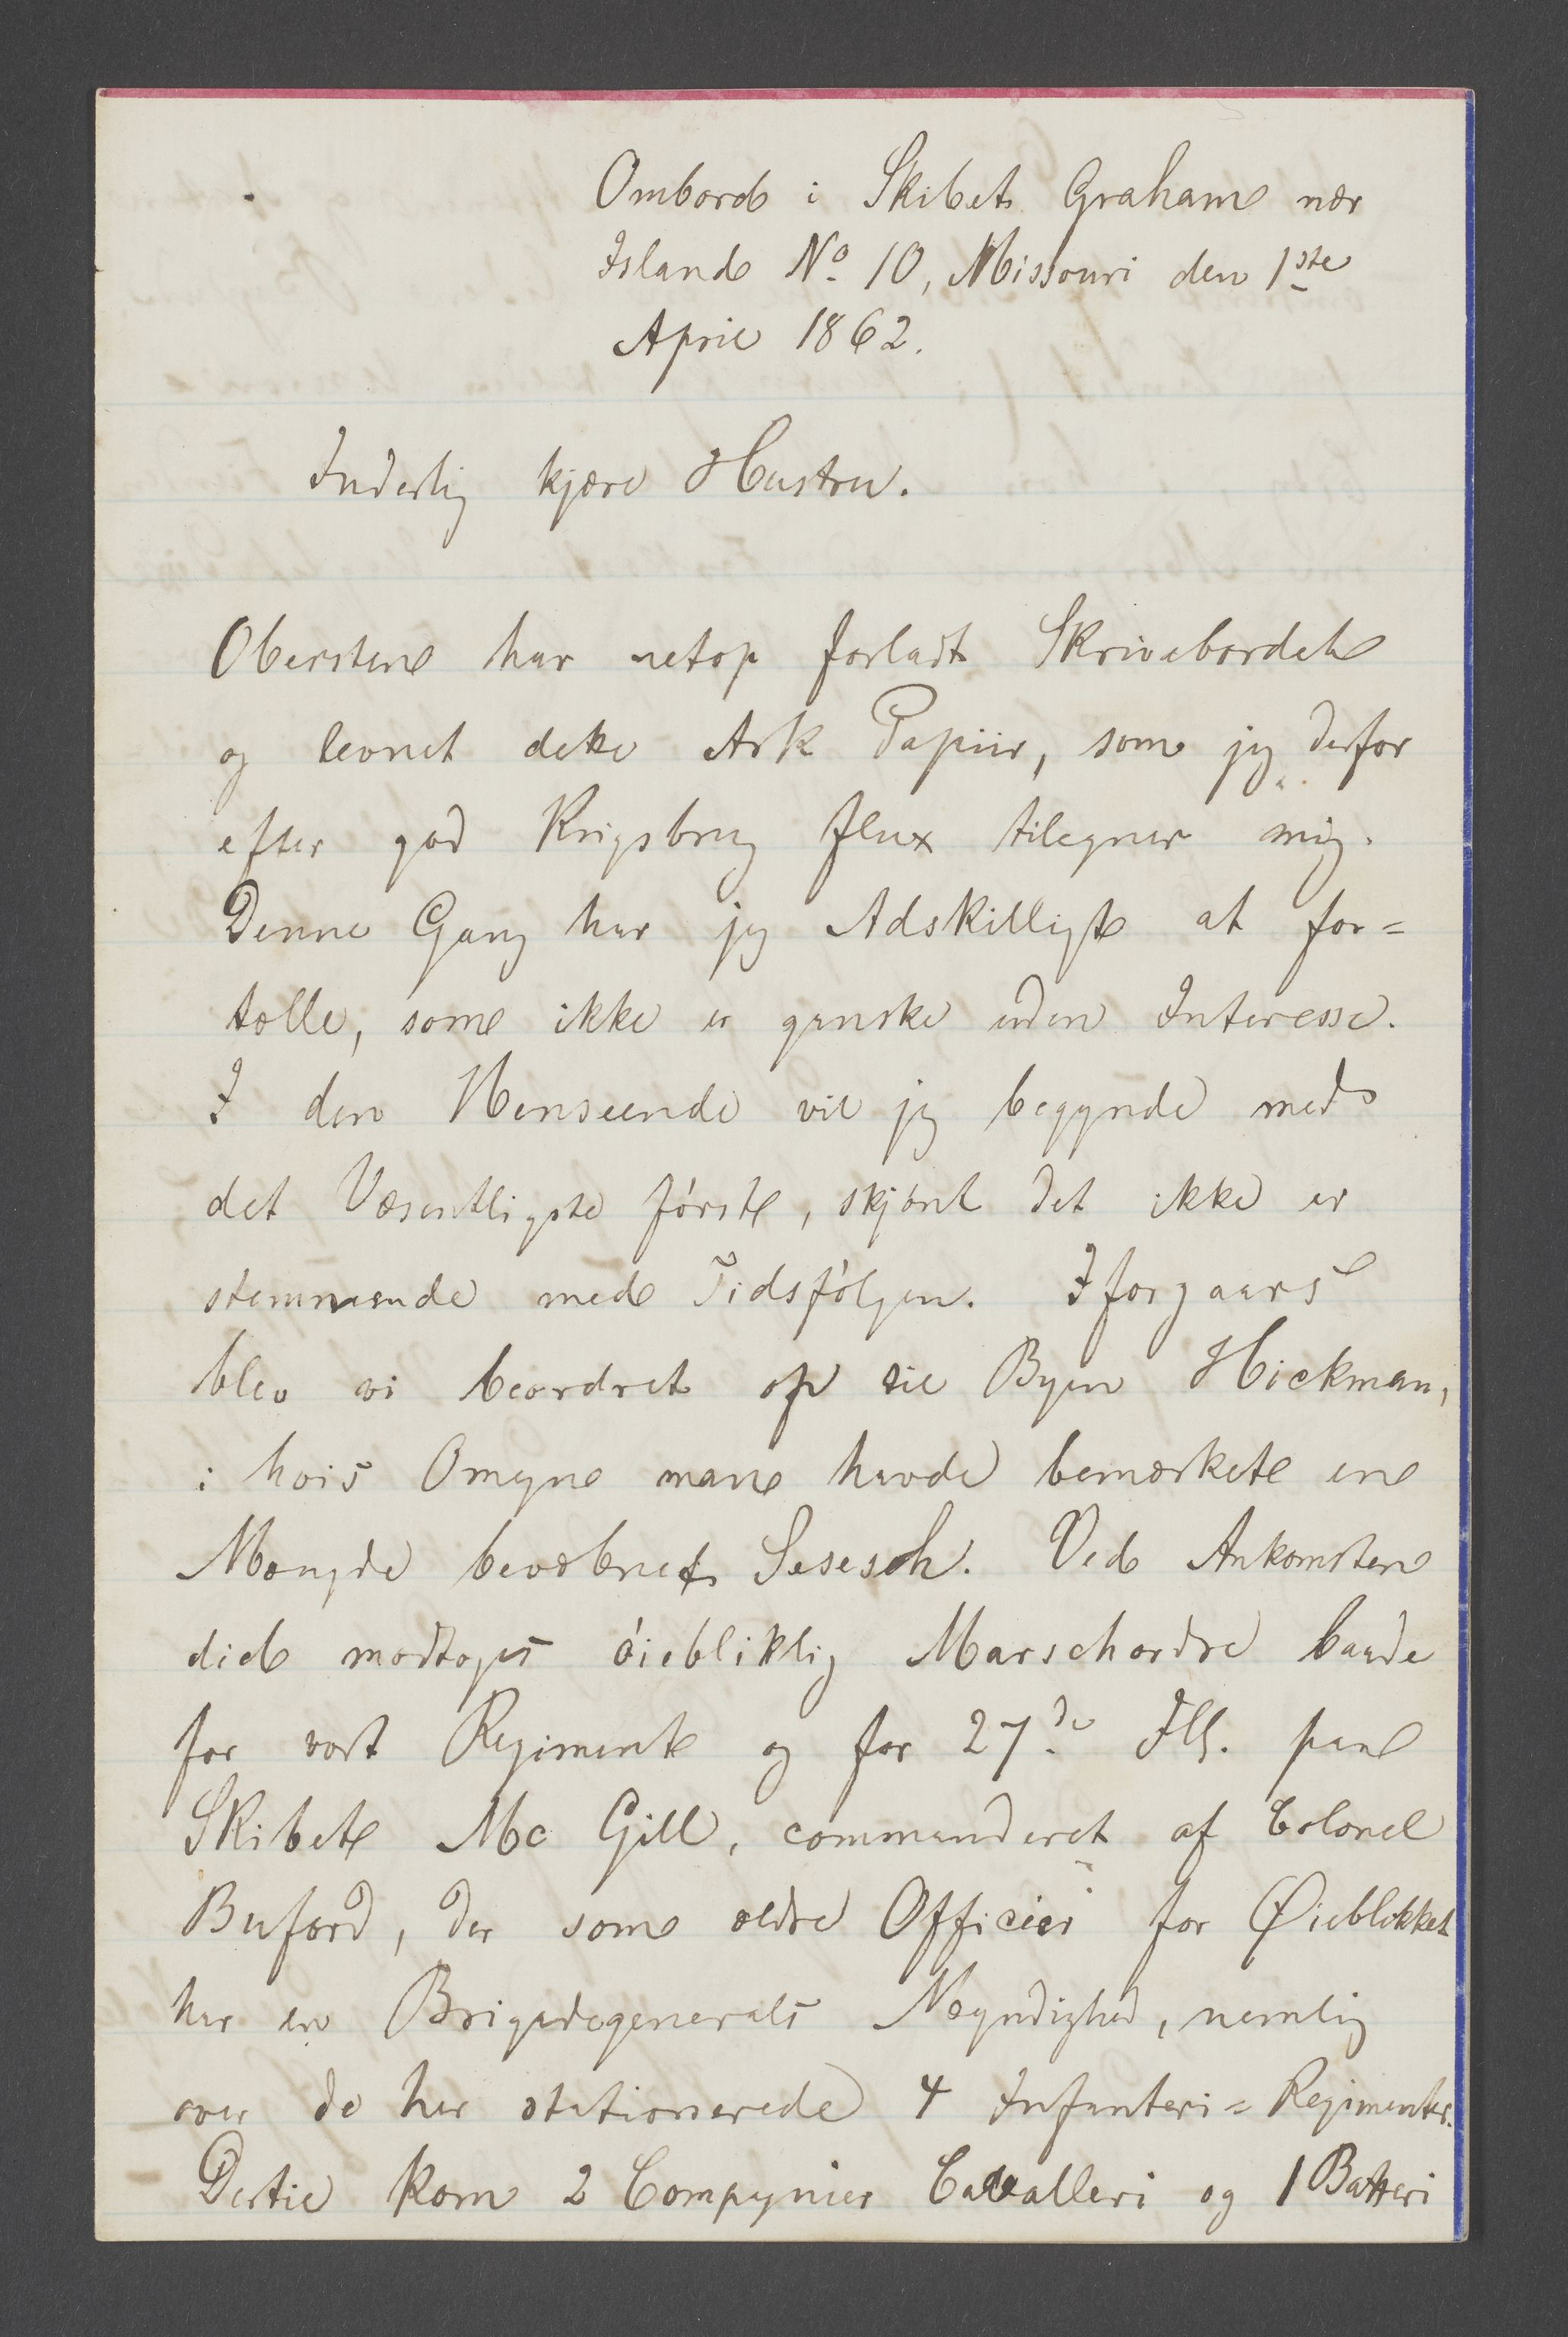 Ombord i Skibet Graham nær
Island No 10, Missouri den 1ste
April 1862.
Inderlig kjære Hustru.
Obersten har netop forladt Skrivebordet
og levnet dette Ark Papiir, som jeg derfor
efter god Krigsbrug flux tilegner mig.
Denne Gang har jeg Adskilligt at for=
tælle, som ikke er ganske uden Interesse.
I den Henseende vil jeg begynde med
det Væsentligste først, skjønt det ikke er
stemmende med Tidsfølgen. Iforgaars
blev vi beordret op til Byen Hickman,
i hvis Omegn man havde bemærket en
Mængde bevæbnet Sesesch. Ved Ankomsten
did modtoges øiebliklig Marschordre baade
for vort Regiment og for 27de Ills. paa
Skibet Mc Gill, commanderet af Colonel
Buford, der som ældre Officier for Øieblikket
har en Brigadegenerals Myndighed, nemlig
over de her stationerede 4 Infanteri=Regimenter.
Dertil kom 2 Compagnier Cavalleri og 1 Batteri